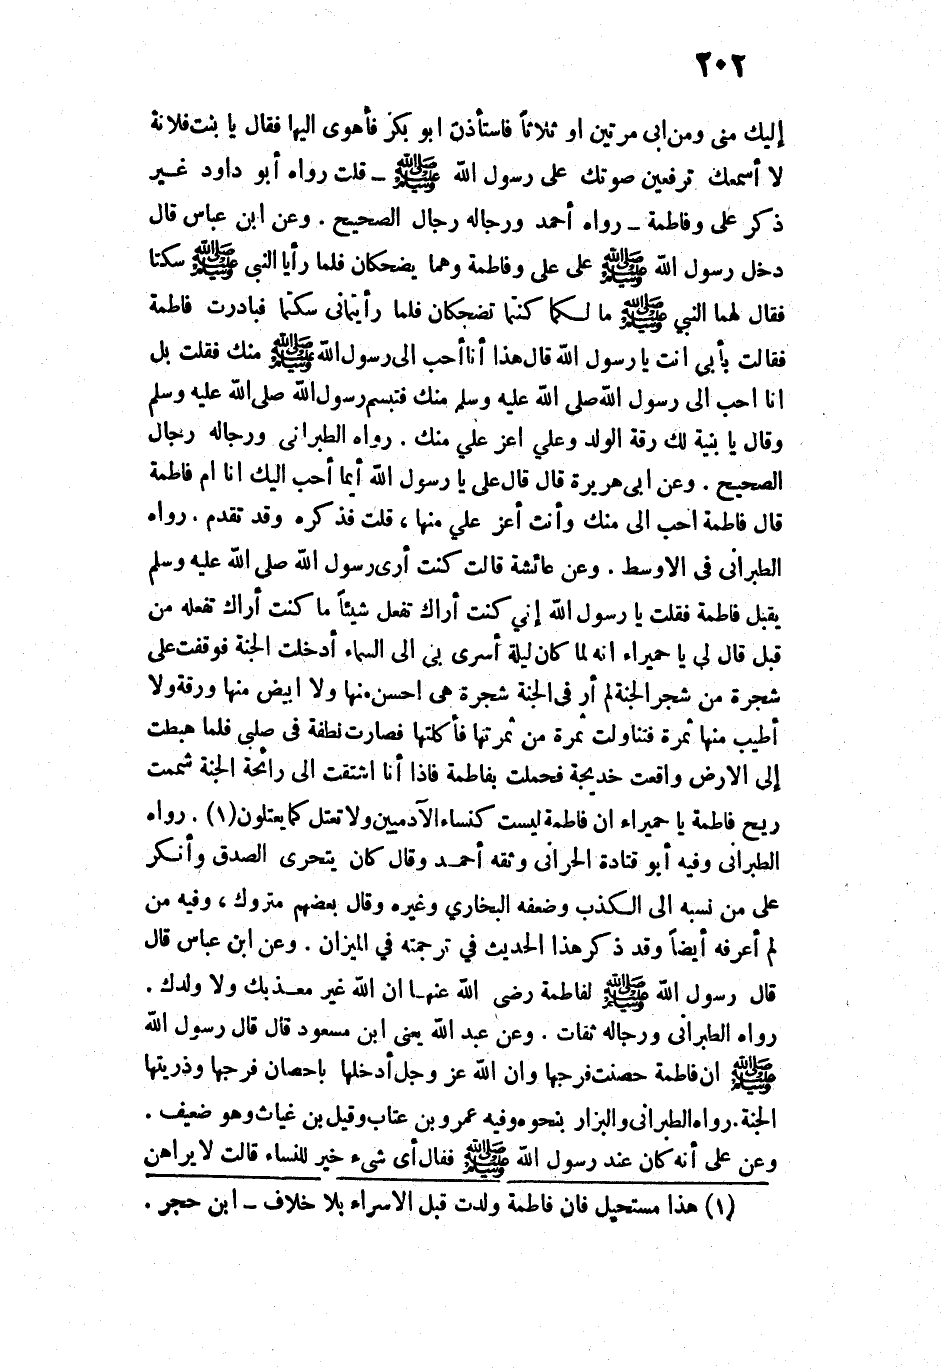 ٢٠٢
إليك منى ومن ابى مرتين او ثلاثاً فاستأذن ابو بكر فأهوى اليها فقال يا بنت فلانة
لا أسمعك ترفعين صوتك على رسول الله ﷺ ـ قلت رواه أبو داود غير
ذكر على وفاطمة ـ رواه أحمد ورجاله رجال الصحيح . وعن ابن عباس قال
دخل رسول الله ﷺ على على وفاطمة وهما يضحكان فلما رأيا النبي ﷺ سكتا
فقال لهما النبي ﷺ ما لكما كنتما تضحكان فلما رأيتمانى سكتما فبادرت فاطمة
فقالت بأبي انت يا رسول الله قال هذا أنا أحب الى رسول الله ﷺ منك فقلت بل
انا احب الى رسول الله صلى الله عليه وسلم منك فتبسم رسول الله صلى الله عليه وسلم
وقال يا بنية لك رقة الولد وعلي اعز علي منك . رواه الطبرانى ورجاله رجال
الصحيح . وعن ابى هريرة قال قال على يا رسول الله أيما أحب اليك انا ام فاطمة
قال فاطمة احب الى منك وأنت أعز علي منها ، قلت فذكره وقد تقدم . رواه
الطبرانى فى الاوسط . وعن عائشة قالت كنت أرى رسول الله صلى الله عليه وسلم
يقبل فاطمة فقلت يا رسول الله إني كنت أراك تفعل شيئاً ما كنت أراك تفعله من
قبل قال لي يا حميراء انه لما كان ليلة أسرى بى الى السماء أدخلت الجنة فوقفت على
شجرة من شجر الجنة لم أر فى الجنة شجرة هى احسن منها ولا ابيض منها ورقة ولا
أطيب منها ثمرة فتناولت ثمرة من ثمرتها فأكلتها فصارت نطفة فى صلبى فلما هبطت
إلى الارض واقعت خديجة فحملت بفاطمة فاذا أنا اشتقت الى رائحة الجنة شممت
ريح فاطمة يا حميراء ان فاطمة ليست كنساء الآدميين ولا تعتل كما يعتلون (١) . رواه
الطبرانى وفيه أبو قتادة الحرانى وثقه أحمد وقال كان يتحرى الصدق وأنكر
على من نسبه الى الكذب وضعفه البخاري وغيره وقال بعضهم متروك ، وفيه من
لم أعرفه أيضاً وقد ذكر هذا الحديث في ترجمته في الميزان . وعن ابن عباس قال
قال رسول الله ﷺ لفاطمة رضى الله عنها ان الله غير معذبك ولا ولدك .
رواه الطبرانى ورجاله ثقات . وعن عبد الله يعنى ابن مسعود قال قال رسول الله
ﷺ ان فاطمة حصنت فرجها وان الله عز وجل أدخلها باحصان فرجها وذريتها
الجنة . رواه الطبرانى والبزار بنحوه وفيه عمرو بن عتاب وقيل بن غياث وهو ضعيف .
وعن على أنه كان عند رسول الله ﷺ فقال أى شىء خير للنساء قالت لا يراهن
(١) هذا مستحيل فان فاطمة ولدت قبل الاسراء بلا خلاف ـ ابن حجر .